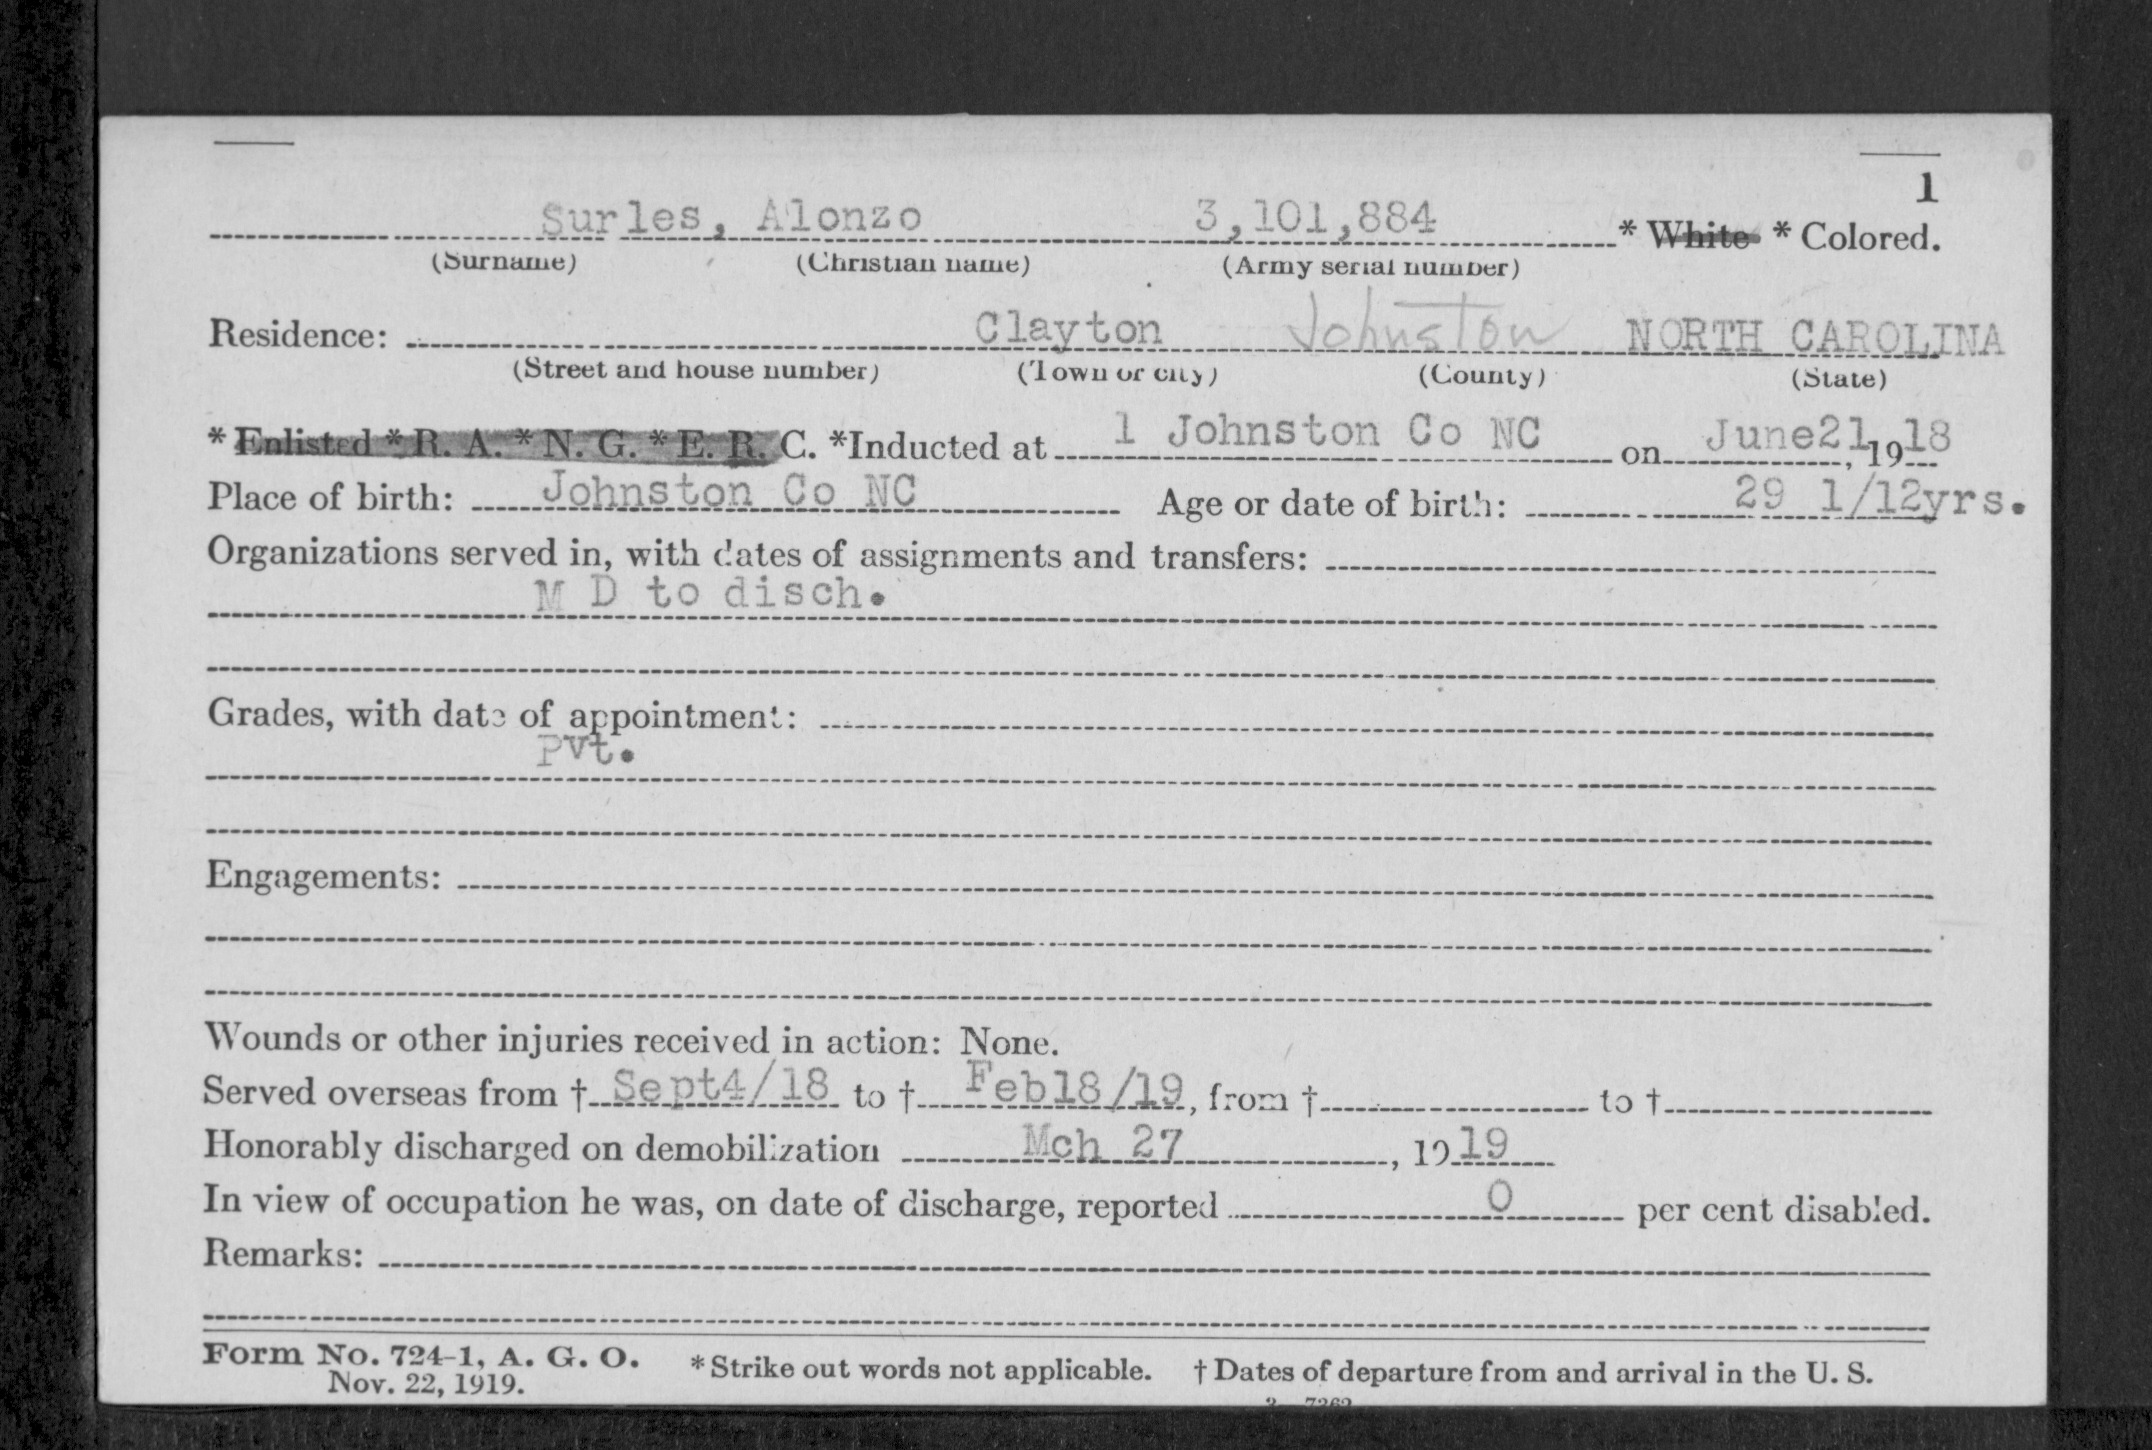 1
Surles, Alonzo 3,101,884 * White * Colored.
(Surname) (Christian name) (Army serial number)
Residence: Clayton Johnston NORTH CAROLINA
(Street and house number) (Town or city) (County) (State)
* Enlisted * R. A. * N. G. * E. R. C. *Inducted at 1 Johnston Co NC on June21, 1918
Place of birth: Johnston Co NC Age or date of birth: 29 1/12yrs.
Organizations served in, with dates of assignments and transfers:
M D to disch.
Grades, with date of appointment:
Pvt.
Engagements:
Wounds or other injuries received in action: None.
Served overseas from † Sept4/18 to † Feb18/19, from † to †
Honorably discharged on demobilization Mch 27, 1919
In view of occupation he was, on date of discharge, reported 0 per cent disabled.
Remarks:
Form No. 724-1, A. G. O. * Strike out words not applicable. † Dates of departure from and arrival in the U. S.
Nov. 22, 1919.